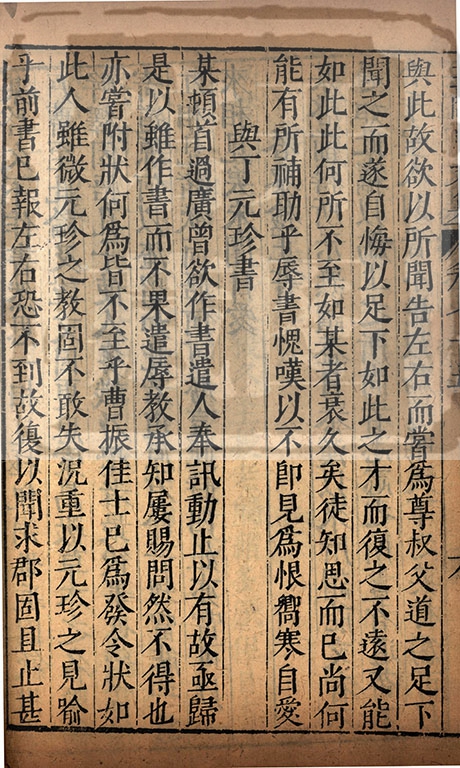 與此故欲以所聞告左右而嘗爲尊叔父道之足下
聞之而遂自悔以足下如此之才而復之不遠又能
如此此何所不至如某者衰久矣徒知思而已尚何
能有所補助乎辱書愧嘆以不即見爲恨嚮寒自愛
與丁元珍書
某頓首過廣曾欲作書遣人奉訊動止以有故亟歸
是以雖作書而不果遣辱教承知屢賜問然不得也
亦嘗附狀何爲皆不至乎曹振佳士已爲發令狀如
此人雖微元珍之教固不敢失況重以元珍之見喻
乎前書已報左右恐不到故復以聞求郡固且止甚